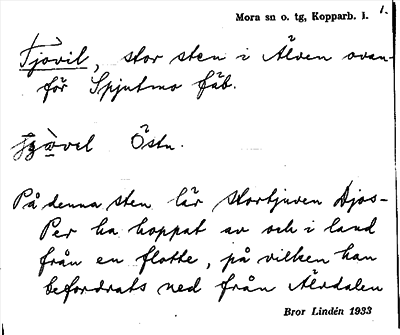 Mora sn o. tg, Kopparb. l. 1.
Tjovil, stor sten i Älven ovan-
för Spjutmo fäb.
Östn.
På denna sten lär stortjuven Djos-
Per ha hoppat av och i land
från en flotte, på vilken han
befordrats ned från Älvdalen
Bror Lindén 1933